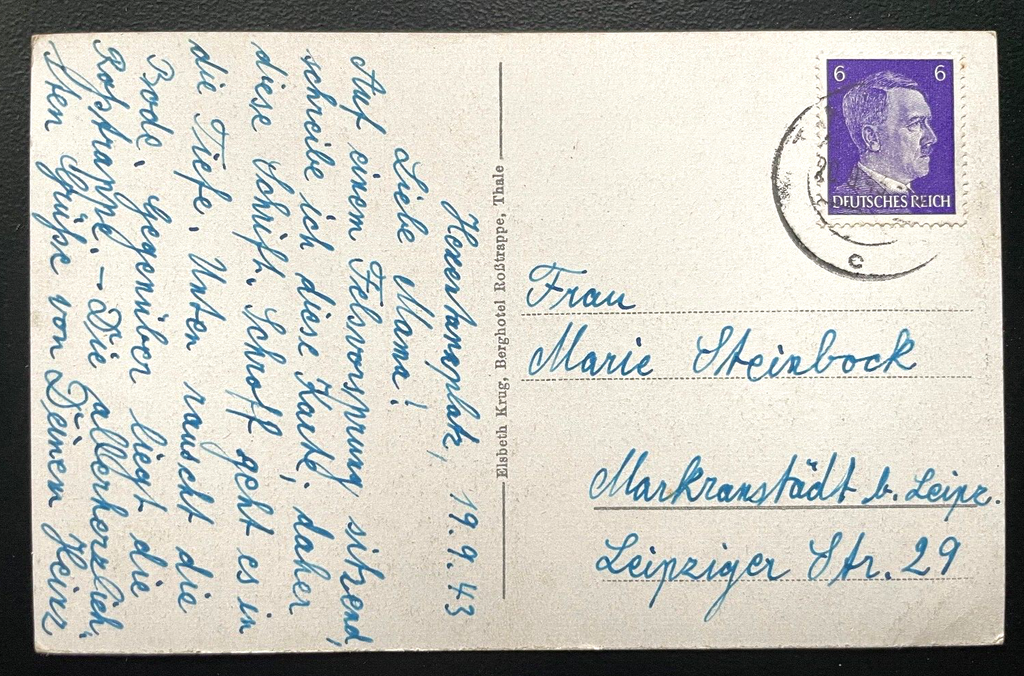 Hexentanzplatz, 19.9.43
Liebe Mama!
Auf einem Felsvorsprung sitzend,
schreibe ich diese Karte, daher
diese Schrift. Schroff geht es in
die Tiefe. Unten rauscht die
Bode. Gegenüber liegt die
Roßtrappe. – Die allerherzlich-
sten Grüße von Deinem Heinz
Elsbeth Krug, Berghotel Roßtrappe, Thale
6 6
DEUTSCHES REICH
c
Frau
Marie Steinbock
Markranstädt b. Leipz.
Leipziger Str. 29